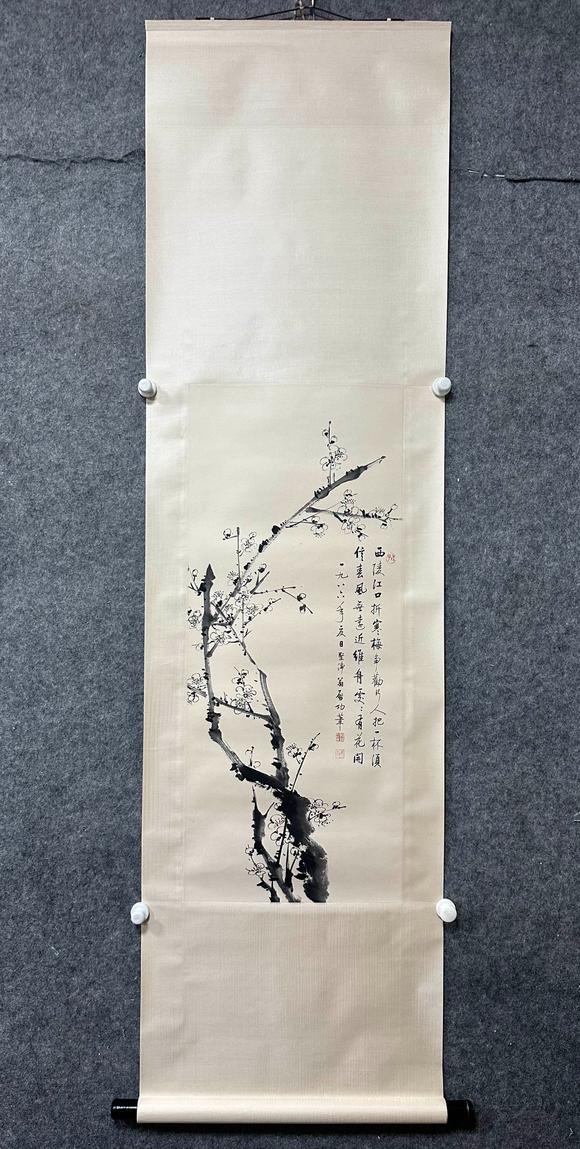 西陵江口折寒梅争劝行人把一杯须
信春风无远近维舟处处有花开
一九八六年夏日坚净翁启功笔